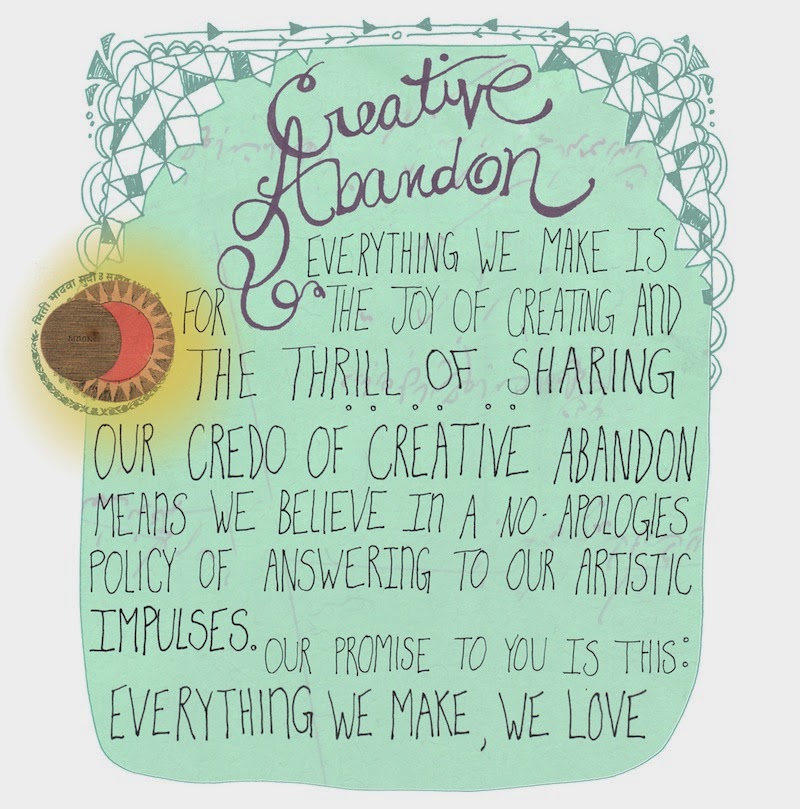 Creative
Abandon
EVERYTHING WE MAKE IS
FOR THE JOY OF CREATING AND
THE THRILL OF SHARING
OUR CREDO OF CREATIVE ABANDON
MEANS WE BELIEVE IN A NO-APOLOGIES
POLICY OF ANSWERING TO OUR ARTISTIC
IMPULSES.
OUR PROMISE TO YOU IS THIS:
EVERYTHING WE MAKE, WE LOVE
मिती भादवा सुदी
MOON